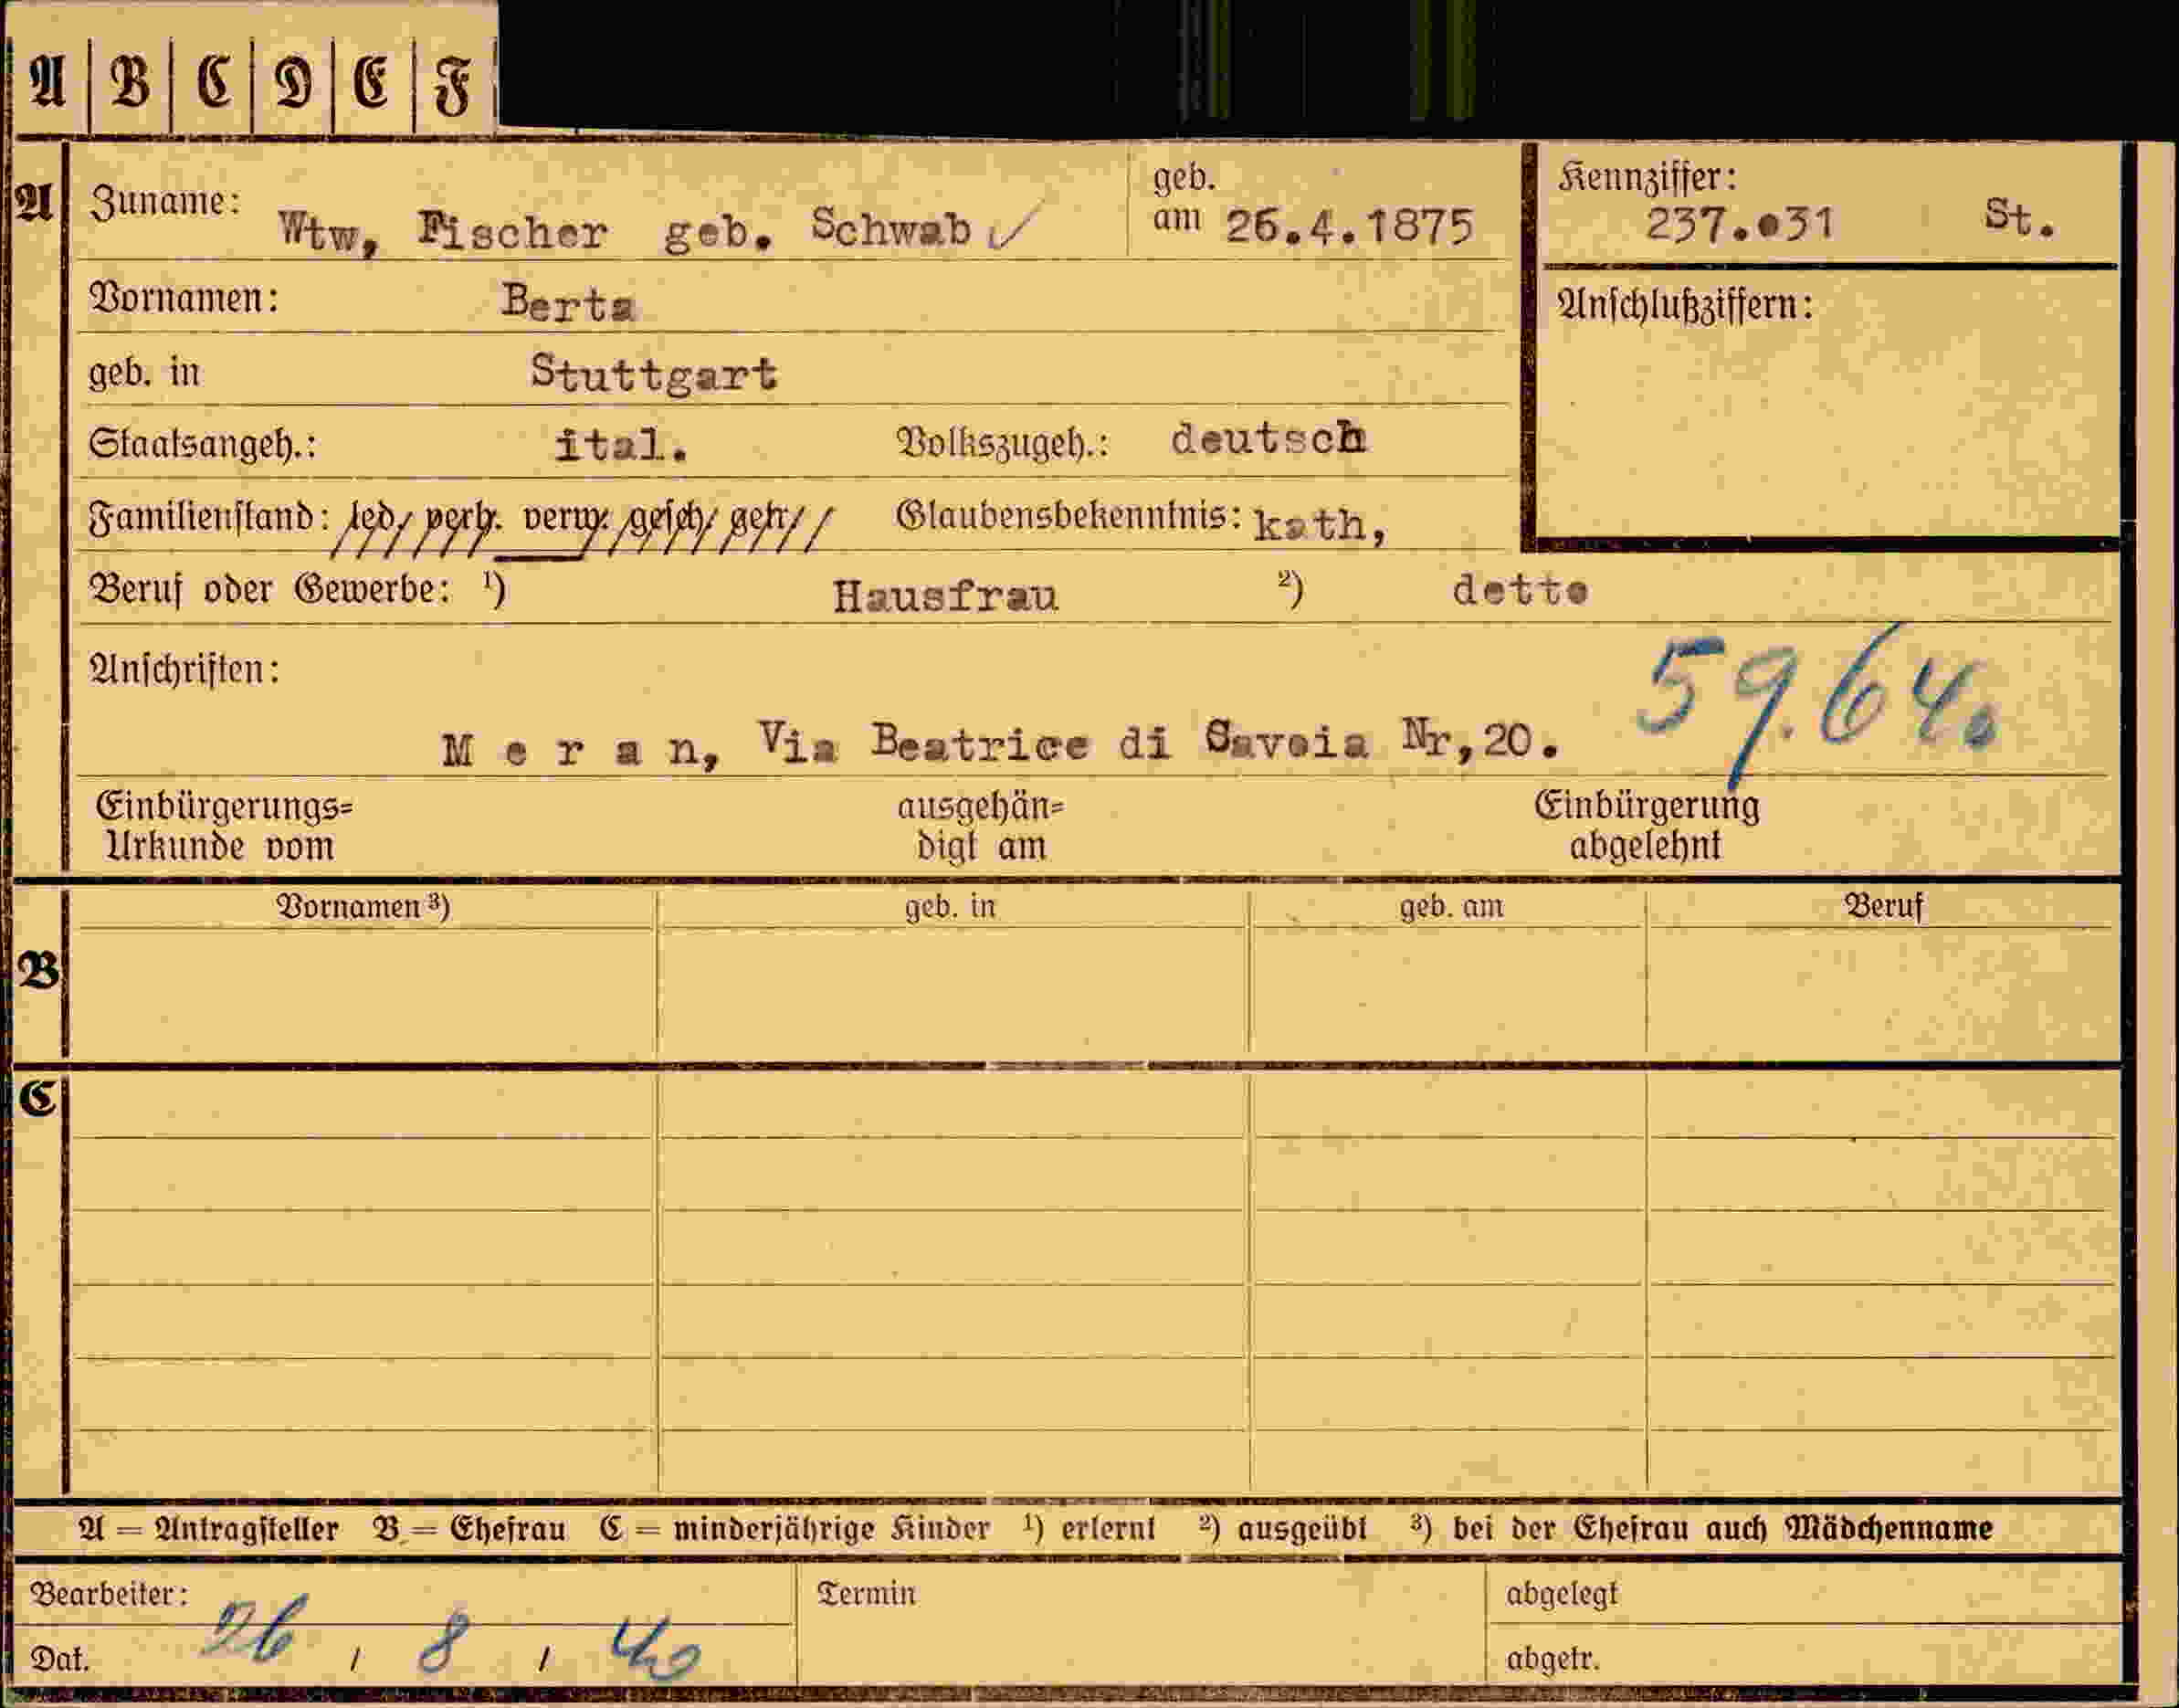 A B C D E F
A Zuname: Wtw, Fischer geb. Schwab ✓ geb. am 26.4.1875
Kennziffer: 237.031 St.
Vornamen: Berta
Anschlußziffern:
geb. in Stuttgart
Staatsangeh.: ital. Volkszugeh.: deutsch
Familienstand: led. verh. verw. gesch. getr. Glaubensbekenntnis: kath,
Beruf oder Gewerbe: ¹) Hausfrau ²) detto
Anschriften:
59.640
M e r a n, Via Beatrice di Savoia Nr,20.
Einbürgerungs= ausgehän= Einbürgerung
Urkunde vom digt am abgelehnt
Vornamen ³) geb. in geb. am Beruf
B
C
A = Antragsteller B = Ehefrau C = minderjährige Kinder ¹) erlernt ²) ausgeübt ³) bei der Ehefrau auch Mädchenname
Bearbeiter: Termin abgelegt
Dat. 26 / 8 / 40 abgetr.